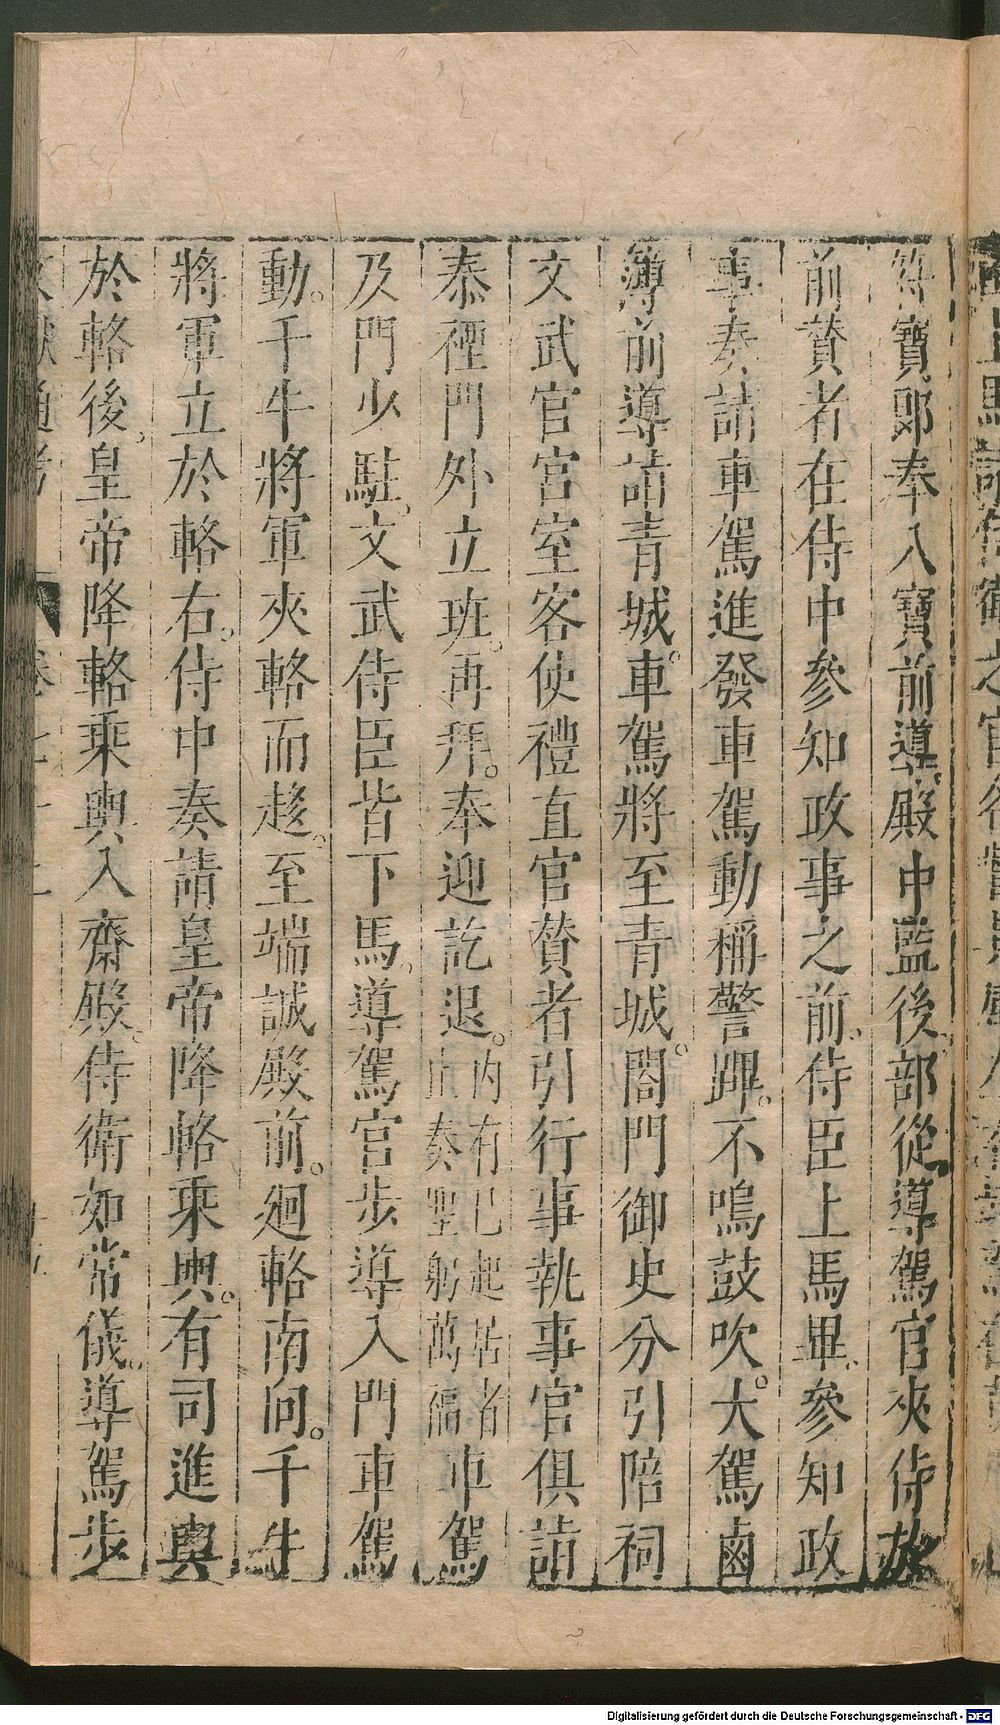 符寶郎奉入寶前導。殿中監後部從導駕官夾侍於
前贊者在侍中參知政事之前。侍臣上馬畢。參知政
事奏請車駕進發車駕動稱警蹕。不鳴鼓吹。大駕鹵
簿前導詣青城。車駕將至青城。閤門御史分引陪祠
文武官宮室客使禮直官贊者引行事執事官俱詣
泰禋門外立班。再拜。奉迎訖退。內有已起居者止奏聖躬萬福車駕
及門少駐。文武侍臣皆下馬。導駕官步導入門車駕
動。千牛將軍夾輅而趍。至端誠殿前。廻輅南向。千牛
將軍立於輅右。侍中奏請皇帝降輅乘輿。有司進輿
於輅後。皇帝降輅乘輿入齋殿。侍衛如常儀。導駕步
Digitalisierung gefördert durch die Deutsche Forschungsgemeinschaft - DFG